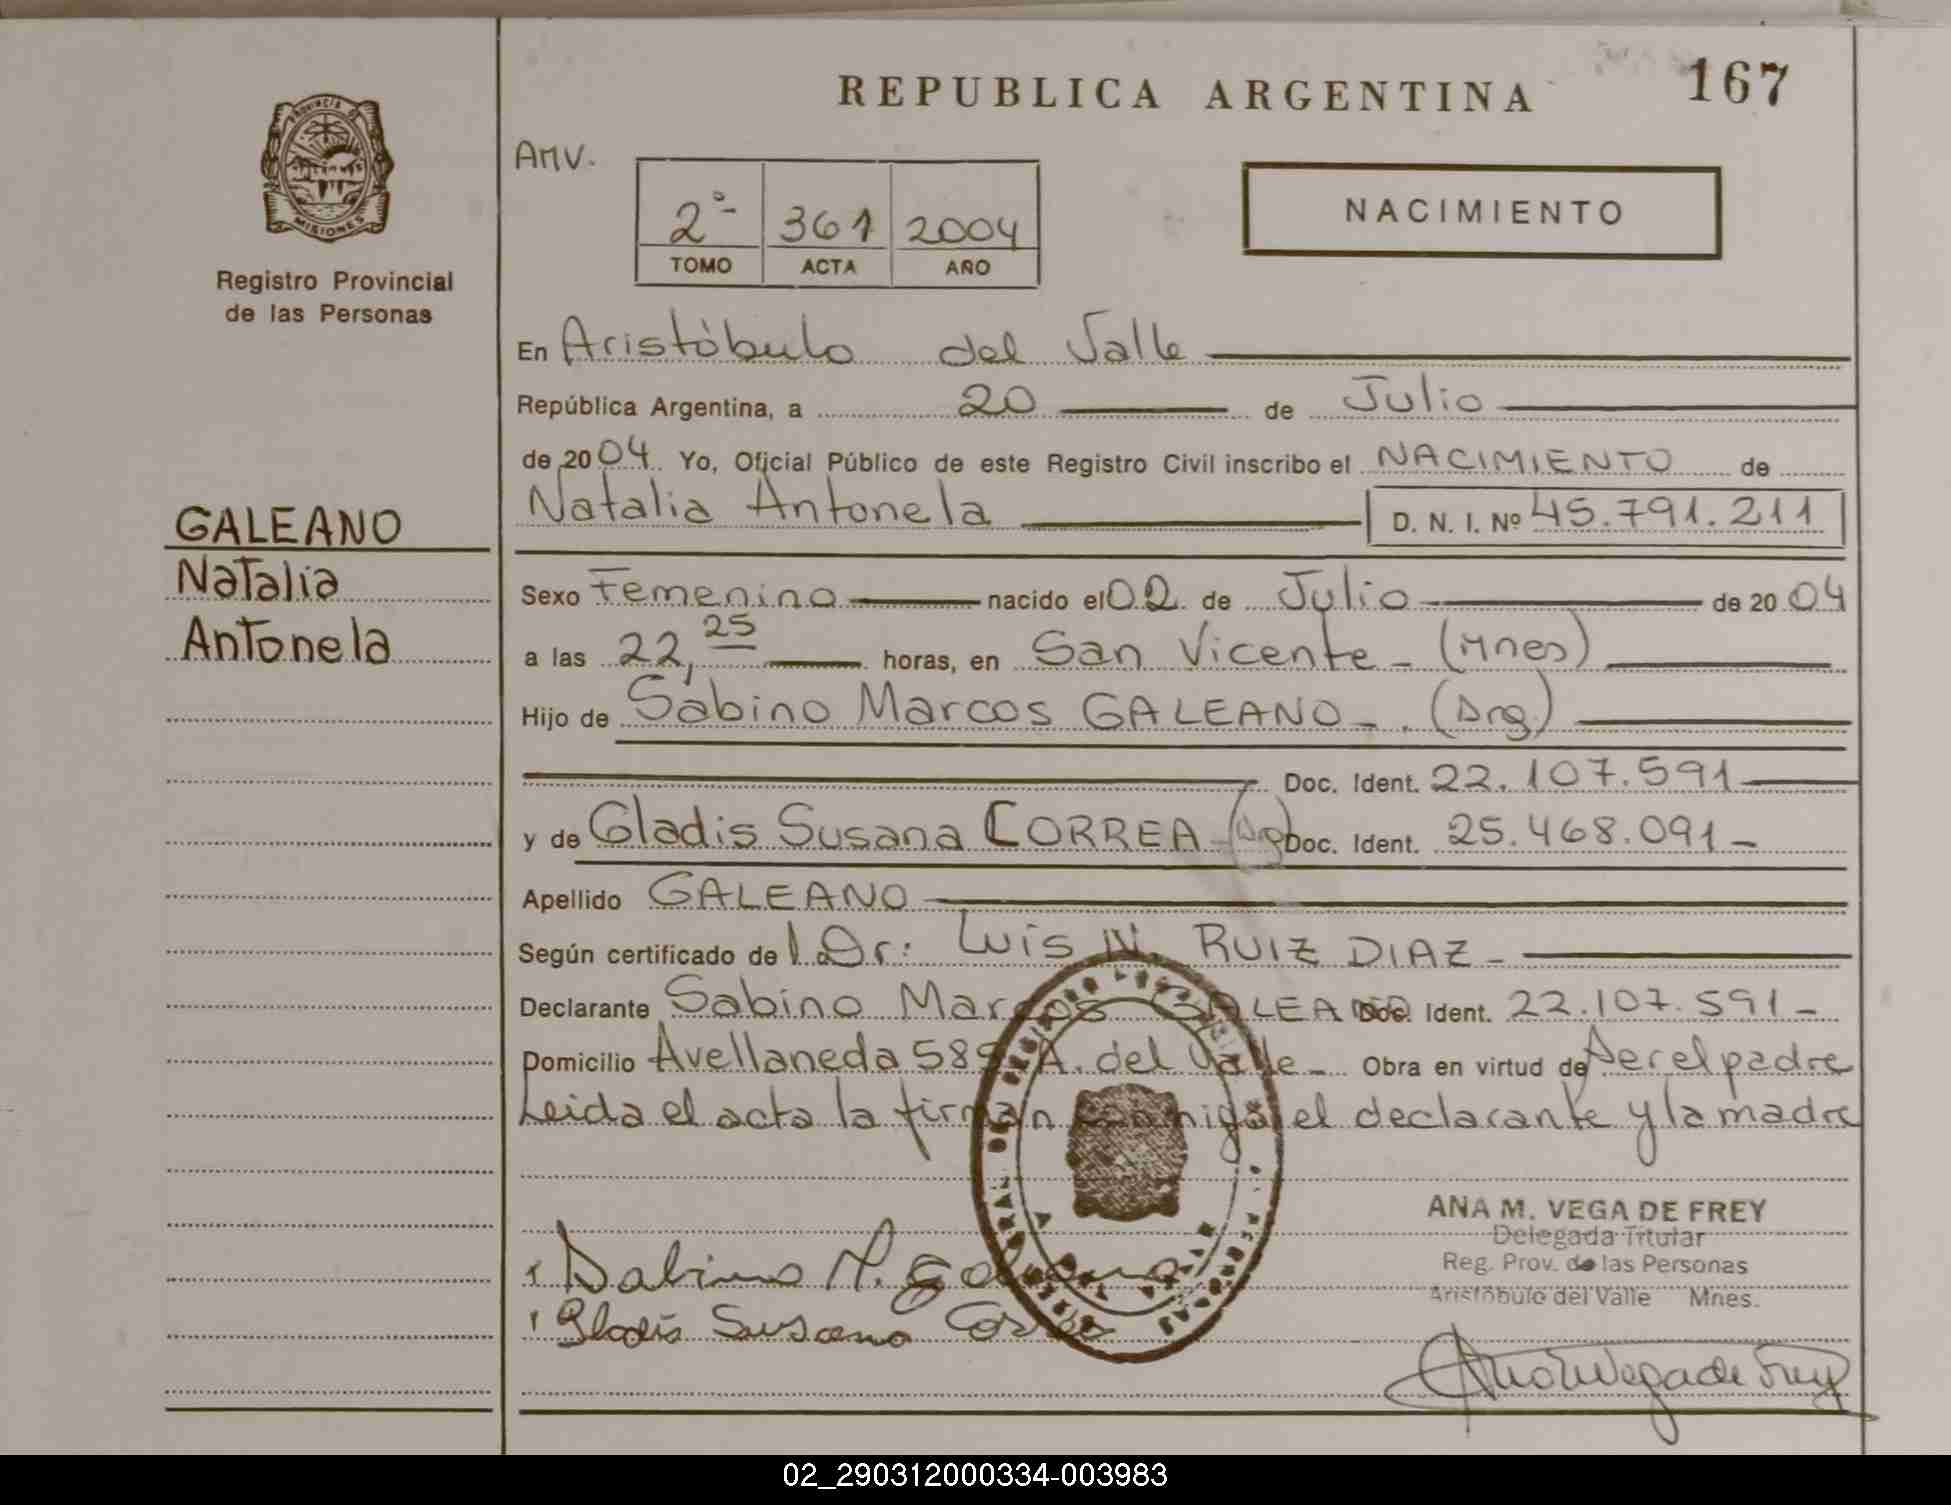 REPUBLICA ARGENTINA 167
PROVINCIA DE
MISIONES
Registro Provincial
de las Personas
AMV.
2º 361 2004
TOMO ACTA AÑO
NACIMIENTO
GALEANO
Natalia
Antonela
En Aristóbulo del Valle
República Argentina, a 20 de Julio
de 2004. Yo, Oficial Público de este Registro Civil inscribo el NACIMIENTO de
Natalia Antonela D. N. I. Nº 45.791.211
Sexo Femenino nacido el 02 de Julio de 2004
a las 22,25 horas, en San Vicente - (Mnes)
Hijo de Sabino Marcos GALEANO - (Arg)
Doc. Ident. 22.107.591
y de Gladis Susana CORREA - (Arg) Doc. Ident. 25.468.091 -
Apellido GALEANO
Según certificado de l Dr: Luis N. RUIZ DIAZ -
Declarante Sabino Marcos GALEANO Doc. Ident. 22.107.591 -
Domicilio Avellaneda 589 A. del Valle - Obra en virtud de ser el padre
Leida el acta la firman conmigo el declarante y la madre
ANA M. VEGA DE FREY
Delegada Titular
Reg. Prov. de las Personas
Aristóbulo del Valle Mnes.
Sabino M. Galeano
Gladis Susana Correa
Ana M Vega de Frey
02_290312000334-003983